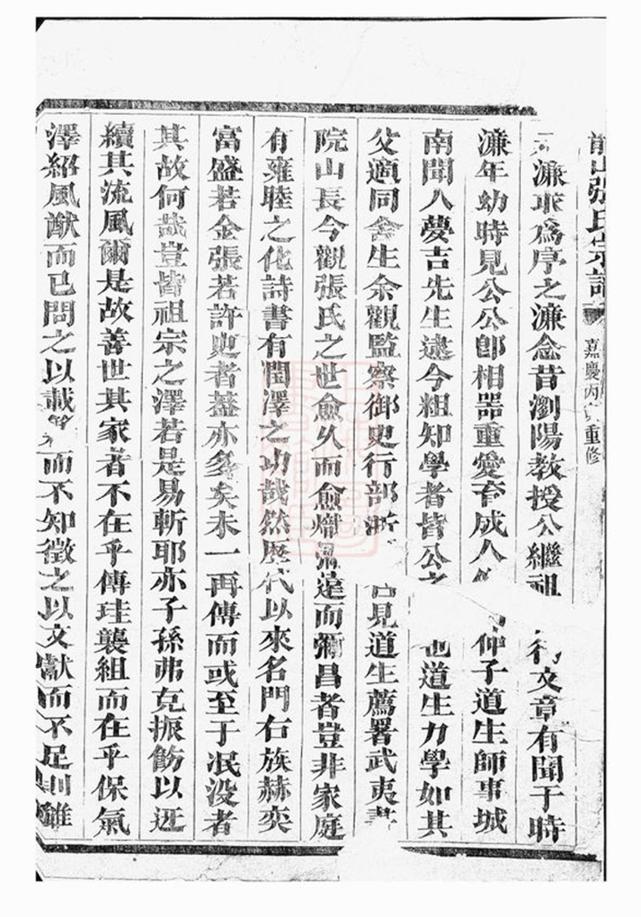 張氏宗譜 嘉慶丙 重修
濂求爲序之濂念昔瀏陽教授公繼祖 文章有聞于時
濂年幼時見公公郎相器重愛育成人 仲子道生師事城
南聞人夢吉先生逮今粗知學者皆公之 也道生力學如其
父適同舍生余觀監察御史行部浙 見道生薦署武夷書
院山長今觀張氏之世愈久而愈熾彌遠而彌昌者豈非家庭
有雍睦之化詩書有潤澤之功哉然歷代以來名門右族赫奕
富盛若金張若許史者葢亦多矣未一再傳而或至于泯没者
其故何哉豈皆祖宗之澤若是易斬耶亦子孫弗克振飭以迓
續其流風爾是故善世其家者不在乎傳珪襲組而在乎保氣
澤紹風猷而已問之以載 而不知徵之以文獻而不足 雖